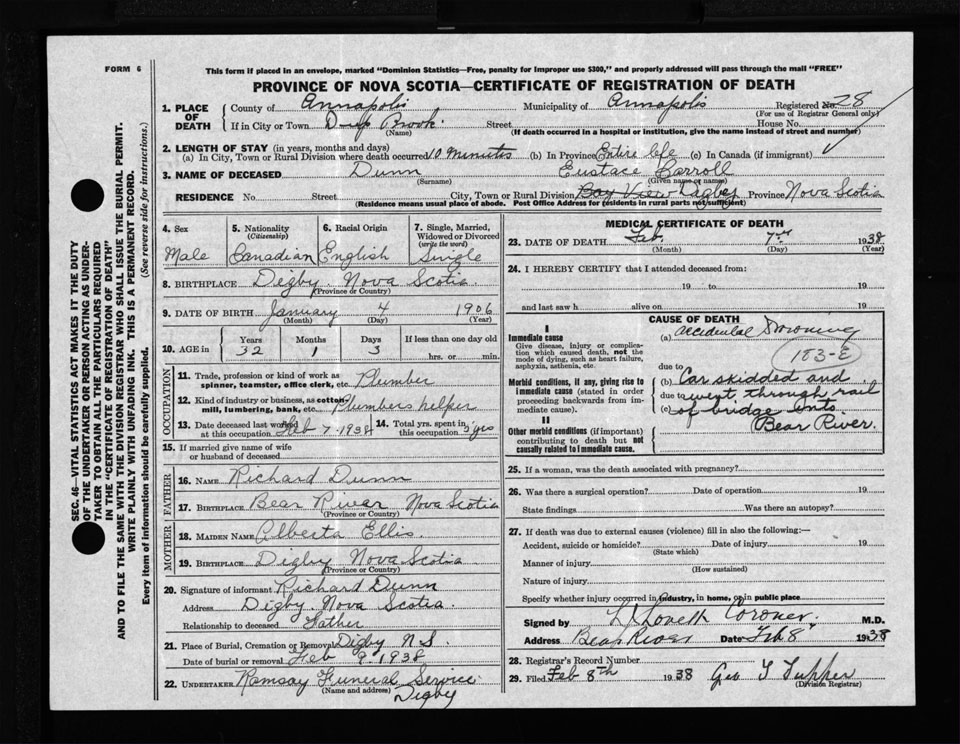 FORM 6
This form if placed in an envelope, marked "Dominion Statistics—Free, penalty for improper use $300," and properly addressed will pass through the mail "FREE"
PROVINCE OF NOVA SCOTIA—CERTIFICATE OF REGISTRATION OF DEATH
1. PLACE OF DEATH County of Annapolis Municipality of Annapolis Registered No. 28
(For use of Registrar General only)
If in City or Town Deep Brook Street House No.
(Name) (If death occurred in a hospital or institution, give the name instead of street and number)
2. LENGTH OF STAY (in years, months and days)
(a) In City, Town or Rural Division where death occurred 10 minutes (b) In Province Entire life (c) In Canada (if immigrant)
3. NAME OF DECEASED Dunn Eustace Carroll
(Surname) (Given name or names)
RESIDENCE No. Street City, Town or Rural Division Bay View Digby Province Nova Scotia
(Residence means usual place of abode. Post Office Address for residents in rural parts not sufficient)
4. Sex Male
5. Nationality (Citizenship) Canadian
6. Racial Origin English
7. Single, Married, Widowed or Divorced (write the word) Single
8. BIRTHPLACE Digby Nova Scotia
(Province or Country)
9. DATE OF BIRTH January 4 1906
(Month) (Day) (Year)
10. AGE in Years Months Days If less than one day old
32 1 3 hrs. or min.
OCCUPATION
11. Trade, profession or kind of work as spinner, teamster, office clerk, etc. Plumber
12. Kind of industry or business, as cotton-mill, lumbering, bank, etc. Plumbers helper
13. Date deceased last worked at this occupation Feb 7 - 1938
14. Total yrs. spent in this occupation 3 yrs
15. If married give name of wife or husband of deceased
FATHER
16. NAME Richard Dunn
17. BIRTHPLACE Bear River Nova Scotia
(Province or Country)
MOTHER
18. MAIDEN NAME Alberta Ellis
19. BIRTHPLACE Digby Nova Scotia
(Province or Country)
20. Signature of informant Richard Dunn
Address Digby Nova Scotia
Relationship to deceased Father
21. Place of Burial, Cremation or Removal Digby N S.
Date of burial or removal Feb 9. 1938
22. UNDERTAKER Ramsay Funeral Service
(Name and address) Digby
MEDICAL CERTIFICATE OF DEATH
23. DATE OF DEATH Feb. 7th 1938
(Month) (Day) (Year)
24. I HEREBY CERTIFY that I attended deceased from:
19 to 19
and last saw h alive on 19
CAUSE OF DEATH
I
Immediate cause
Give disease, injury or complication which caused death, not the mode of dying, such as heart failure, asphyxia, asthenia, etc.
(a) accidental Drowning
183-E
due to
Morbid conditions, if any, giving rise to immediate cause (stated in order proceeding backwards from immediate cause).
(b) Car skidded and
due to went through rail
(c) of bridge into
Bear River.
II
Other morbid conditions (if important) contributing to death but not causally related to immediate cause.
25. If a woman, was the death associated with pregnancy?
26. Was there a surgical operation? Date of operation 19
State findings Was there an autopsy?
27. If death was due to external causes (violence) fill in also the following:—
Accident, suicide or homicide? Date of injury 19
(State which)
Manner of injury
(How sustained)
Nature of injury
Specify whether injury occurred in industry, in home, or in public place
Signed by Lovett Coroner M.D.
Address Bear River Date Feb 8" 1938
28. Registrar's Record Number
29. Filed Feb 8th 1938 Geo T Tupper
(Division Registrar)
SEC. 46—VITAL STATISTICS ACT MAKES IT THE DUTY
OF THE UNDERTAKER OR PERSON ACTING AS UNDER-
TAKER TO OBTAIN ALL THE PARTICULARS REQUIRED
IN THE "CERTIFICATE OF REGISTRATION OF DEATH"
AND TO FILE THE SAME WITH THE DIVISION REGISTRAR WHO SHALL ISSUE THE BURIAL PERMIT.
WRITE PLAINLY WITH UNFADING INK. THIS IS A PERMANENT RECORD.
Every item of information should be carefully supplied. (See reverse side for instructions.)